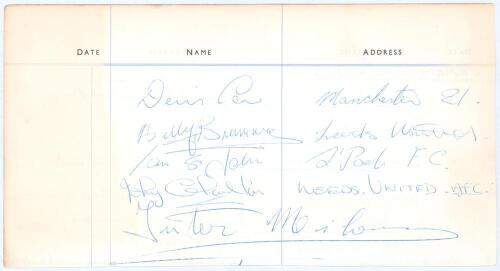 DATE NAME ADDRESS
Denis Law Manchester 21.
Billy Bremner Leeds United
Ian St John L'Pool F.C.
LEEDS. UNITED. AFC.
Inter Milan